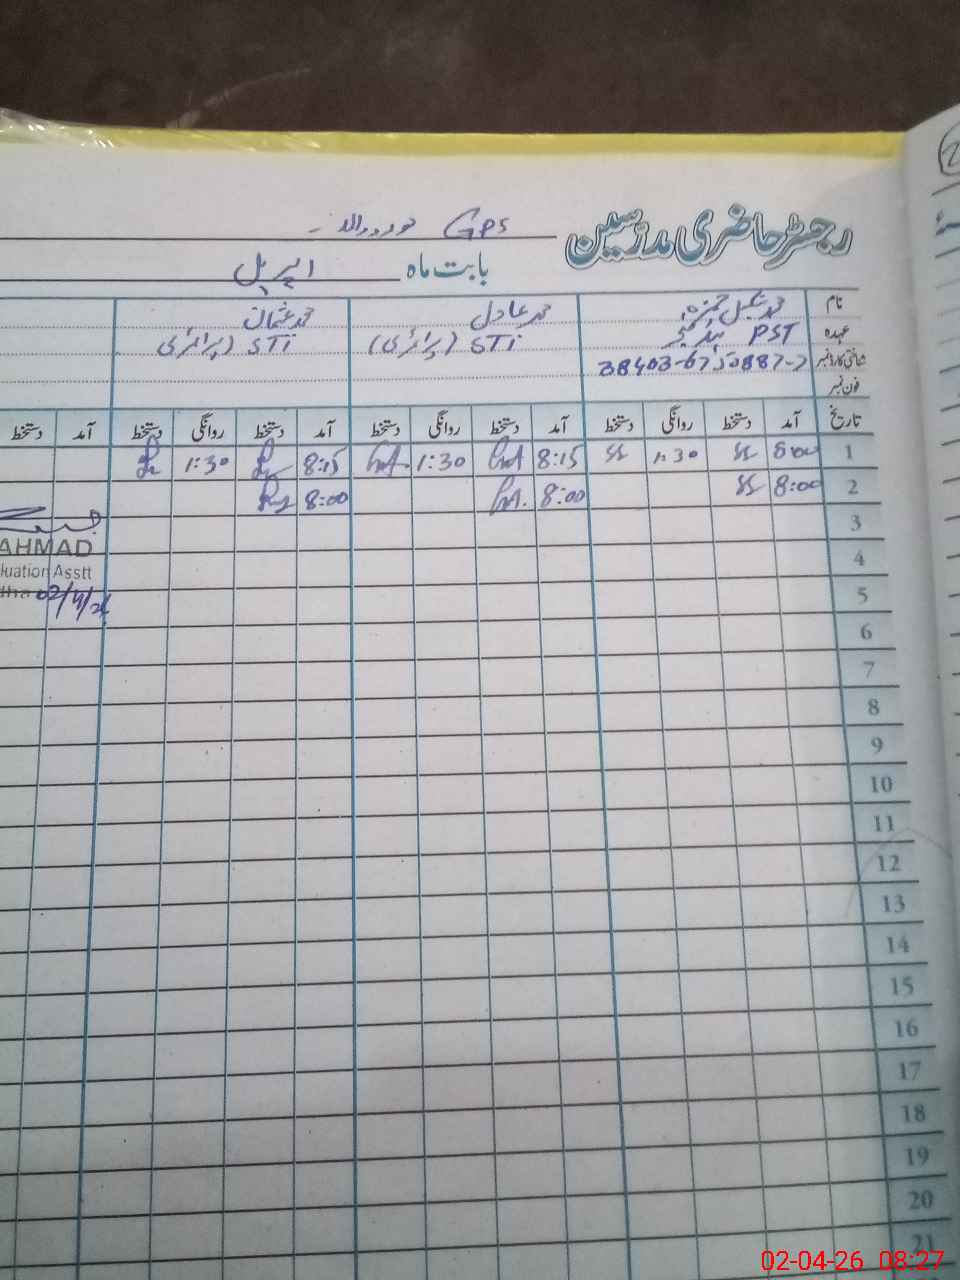 رجسٹر حاضری مدرسین
GPS
بابت ماہ اپریل
نام محمد شکیل حمزہ محمد عادل محمد عثمان
عہدہ PST ہیڈ ٹیچر STI (پرائمری) STI (پرائمری)
شناختی کارڈ نمبر 38403-6750887-7
فون نمبر
تاریخ آمد دستخط روانگی دستخط آمد دستخط روانگی دستخط آمد دستخط روانگی دستخط آمد دستخط
1 8:00 1:30 8:15 1:30 8:15 1:30
2 8:00 8:00 8:00
3
AHMAD
4
luation Asstt
5
dha 02/4/26
6
7
8
9
10
11
12
13
14
15
16
17
18
19
20
21
02-04-26 08:27